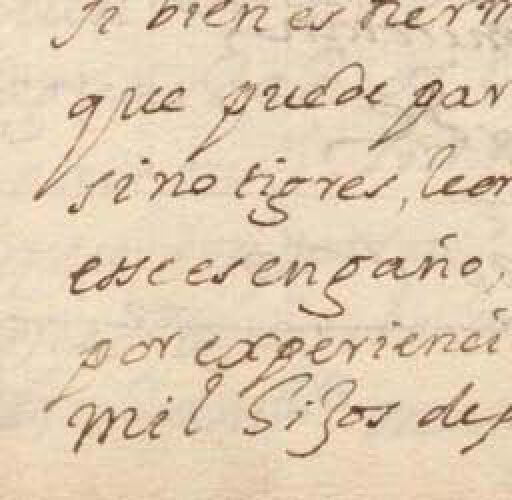 si bien es herm
que puede par
sino tigres, leon
esse es engaño,
por experienci
mil Sizos de